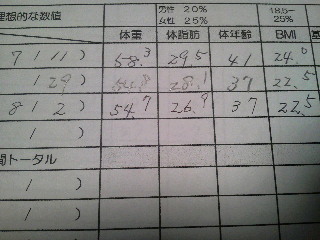 理想的な数値 男性 20% 女性 25% 18.5~ 25%
体重 体脂肪 体年齢 BMI 基
7 / 11 ) 58.3 29.5 41 24.0
/ 29 ) 54.8 28.1 37 22.5
8 / 2 ) 54.7 26.9 37 22.5
/ )
間トータル
/ )
/ )
/ )